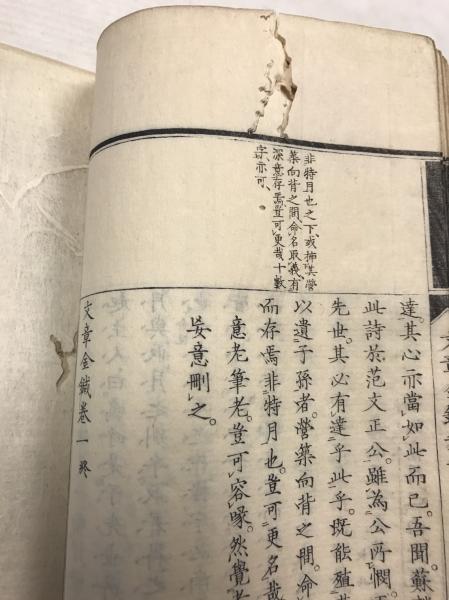 非特月也之下、或揷其營
築向背之間、命名取義、有
深意存焉、豈可更哉十數
字、亦可、
達。其心亦當如此而已。吾聞蘇
此詩於范文正公。雖為公所憫
先世。其必有達乎此乎。既能殖
以遺子孫者。營築向背之間。命
而存焉。非特月也。豈可更名哉
意老筆老。豈可容喙。然覺
妄意刪之。
文章金鍼卷一終